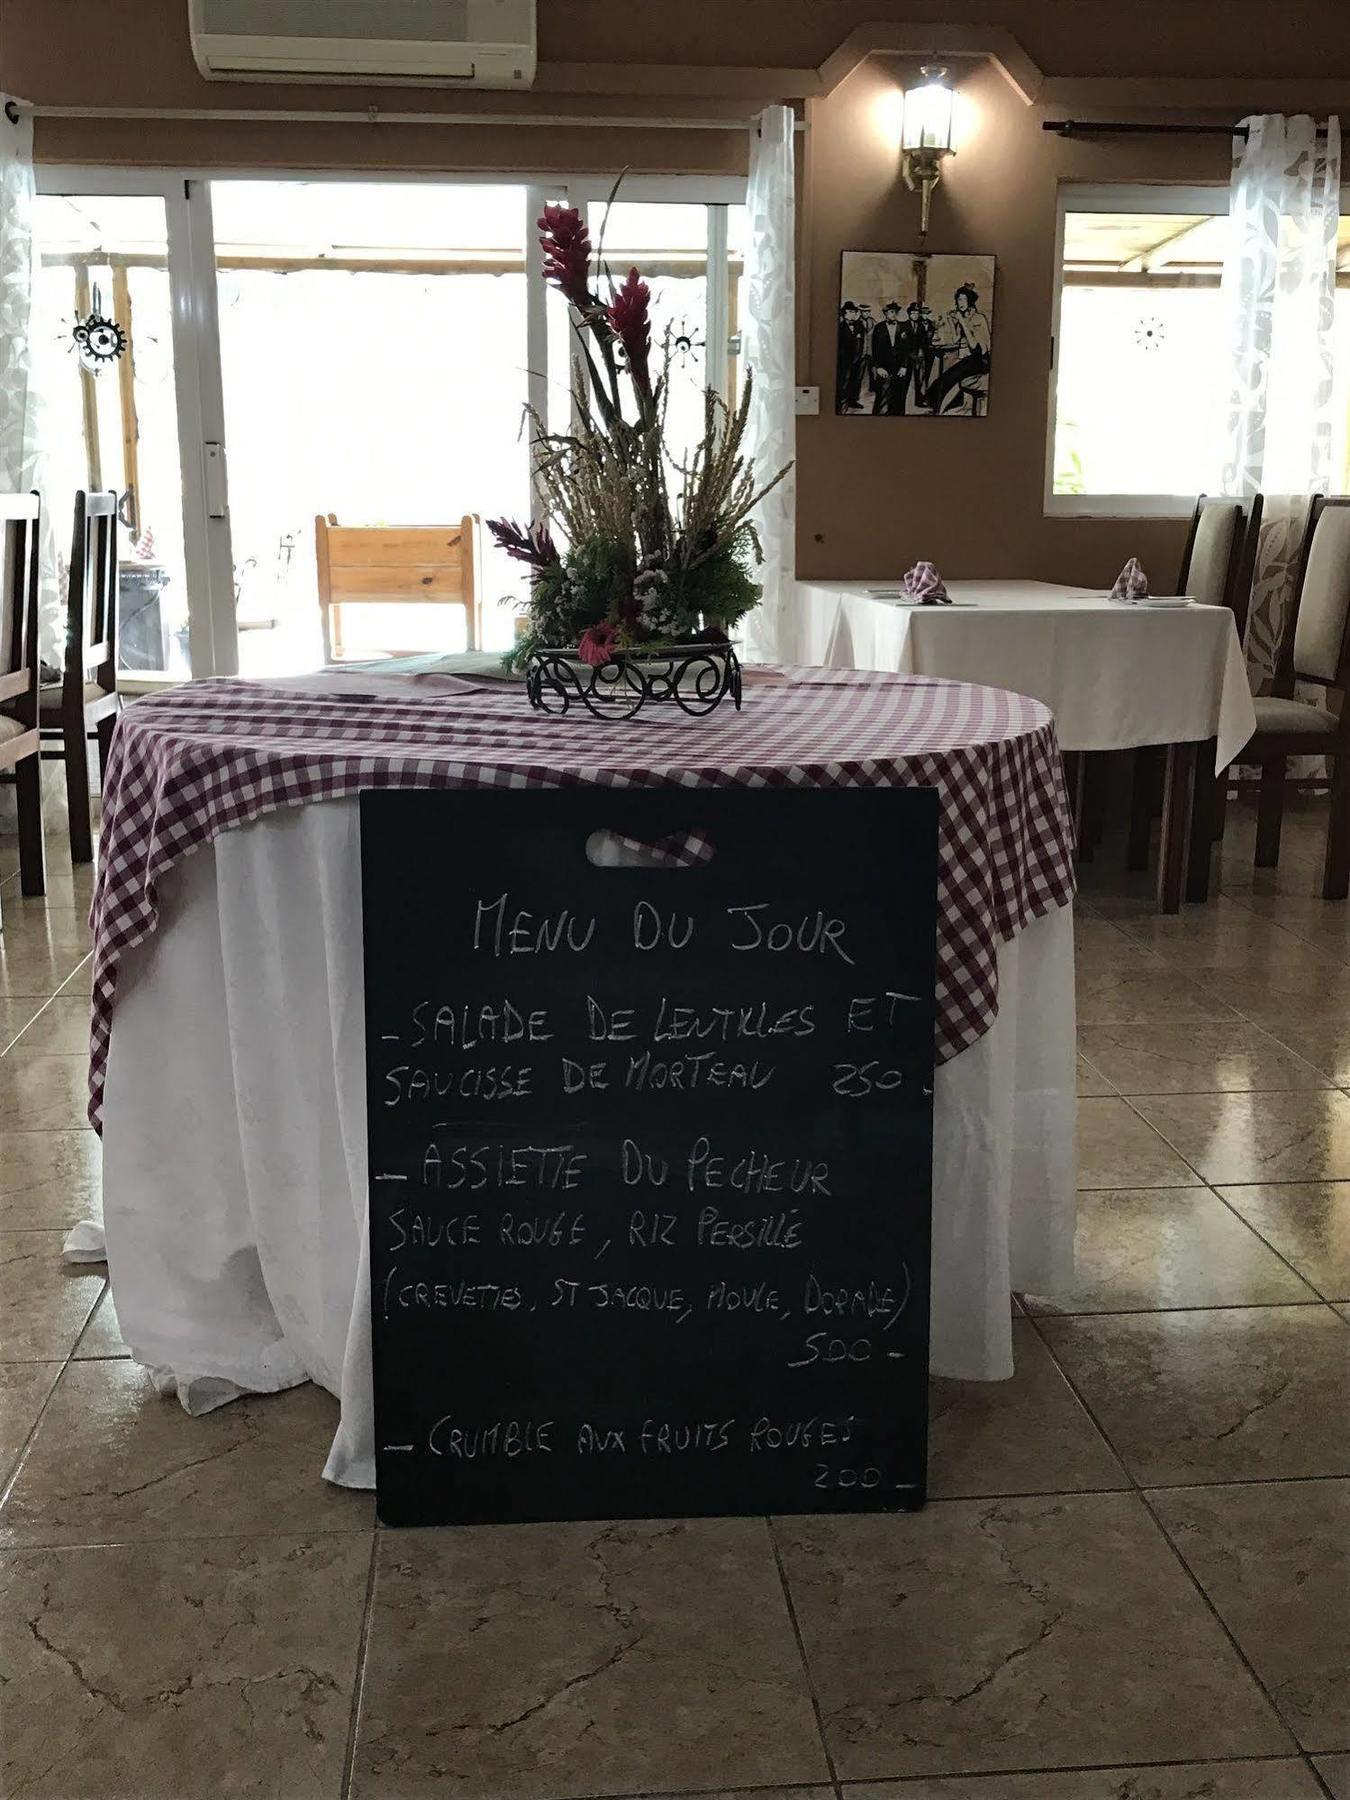 MENU DU JOUR
- SALADE DE LENTILLES ET
SAUCISSE DE MORTEAU 250.
- ASSIETTE DU PECHEUR
SAUCE ROUGE, RIZ PERSILLÉ
(CREVETTES, ST JACQUE, MOULE, DORADE)
500 -
- CRUMBLE AUX FRUITS ROUGES
200 -